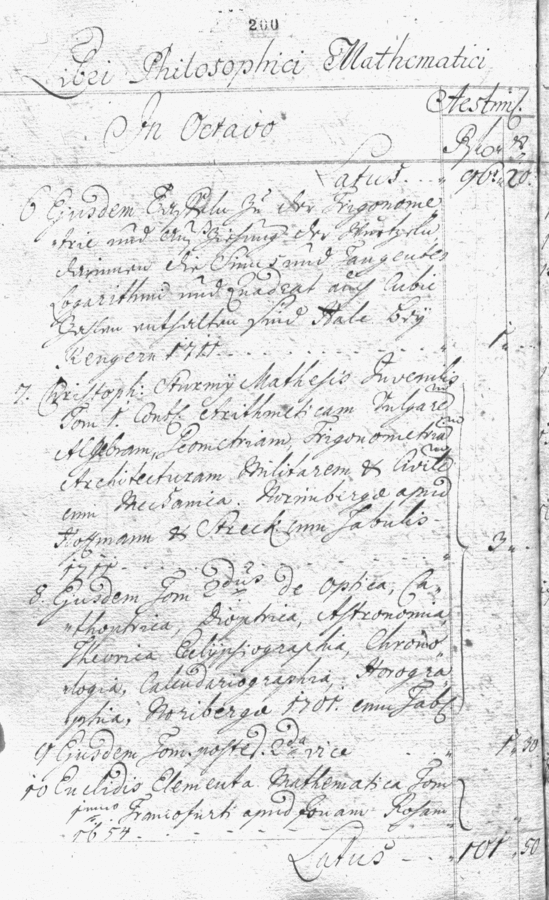 200
Libri Philosophici Mathematici
Aestim.
In Octavo
Latus .. 96. 20.
6 Ejusdem Tafeln zu der Trigonome
trie und Aus Ziehung der Wurtzeln
darinnen die Sinus und Tangentes
Logarithmi und Quadrat auch Cubic
Zahlen enthalten sind Hale bey
Rengern 1711. 1
7. Christoph: Sturmy Mathesis Juvenilis
Tom 1. Arithmeticam Vulgare
Algebram, Geometriam, Trigonometria
Architecturam Militarem & Civile
cum Mechanica. Norimbergae apud
Hoffmann & Streck cum Tabulis
3
8. Ejusdem Tom 2dus de Optica, Ca
thoptrica, Dioptrica, Astronomia,
Theorica Eclypsiographia, Chrono
logia, Calendariographia, Horogra
phia, Noribergae 1701. cum Tab
9 Ejusdem Tom. 2da vice 1. 30
10 Euclidis Elementa Mathematica Tom
primo Francofurti apud
1654
Latus - 101. 50